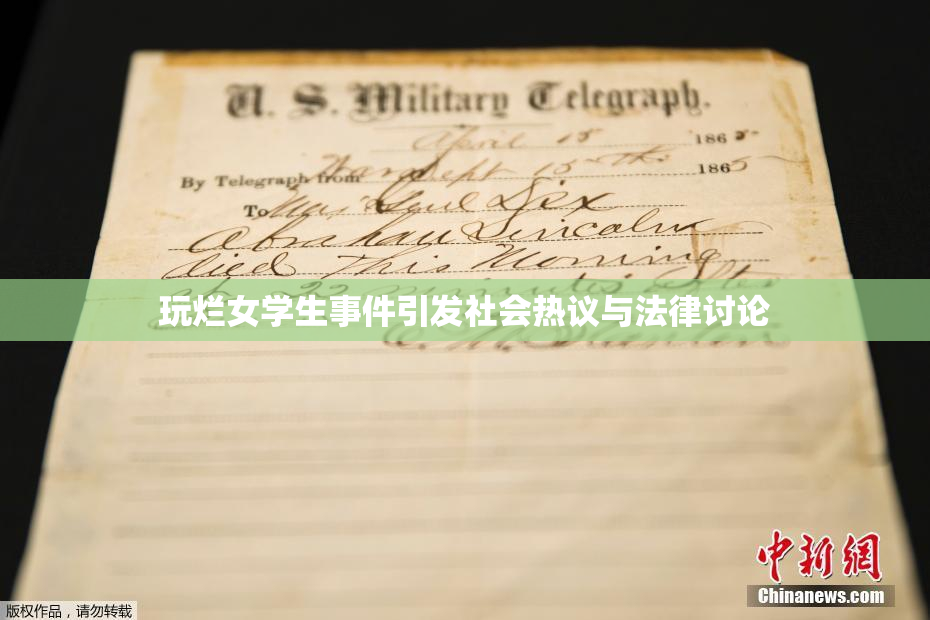 U. S. Military Telegraph.
April 15 1865
By Telegraph from War Dept 15th 1865
To Maj Genl Dix
Abraham Lincoln
died This Morning
at 22 minutes after
玩烂女学生事件引发社会热议与法律讨论
E. M. Stanton
中新网
Chinanews.com
版权作品,请勿转载